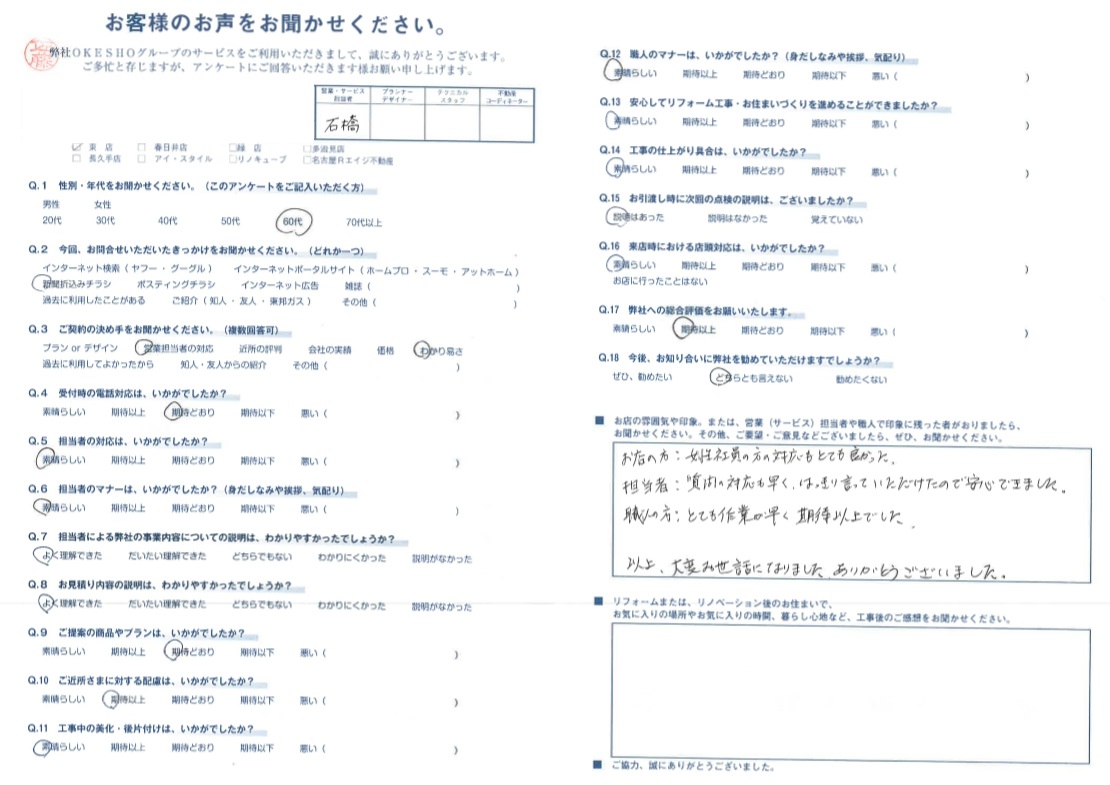 お客様のお声をお聞かせください。
弊社OKESHOグループのサービスをご利用いただきまして、誠にありがとうございます。
ご多忙と存じますが、アンケートにご回答いただきます様お願い申し上げます。
営業・サービス担当者 プランナーデザイナー テクニカルスタッフ 不動産コーディネーター
石橋
☑ 東店 □ 春日井店 □緑店 □多治見店
□ 長久手店 □ アイ・スタイル □リノキューブ □名古屋Rエイジ不動産
Q.1 性別・年代をお聞かせください。(このアンケートをご記入いただく方)
男性 女性
20代 30代 40代 50代 60代 70代以上
Q.2 今回、お問合せいただいたきっかけをお聞かせください。(どれか一つ)
インターネット検索(ヤフー・グーグル) インターネットポータルサイト(ホームプロ・スーモ・アットホーム)
新聞折込みチラシ ポスティングチラシ インターネット広告 雑誌( )
過去に利用したことがある ご紹介(知人・友人・東邦ガス) その他( )
Q.3 ご契約の決め手をお聞かせください。(複数回答可)
プラン or デザイン 営業担当者の対応 近所の評判 会社の実績 価格 わかり易さ
過去に利用してよかったから 知人・友人からの紹介 その他( )
Q.4 受付時の電話対応は、いかがでしたか?
素晴らしい 期待以上 期待どおり 期待以下 悪い( )
Q.5 担当者の対応は、いかがでしたか?
素晴らしい 期待以上 期待どおり 期待以下 悪い( )
Q.6 担当者のマナーは、いかがでしたか?(身だしなみや挨拶、気配り)
素晴らしい 期待以上 期待どおり 期待以下 悪い( )
Q.7 担当者による弊社の事業内容についての説明は、わかりやすかったでしょうか?
よく理解できた だいたい理解できた どちらでもない わかりにくかった 説明がなかった
Q.8 お見積り内容の説明は、わかりやすかったでしょうか?
よく理解できた だいたい理解できた どちらでもない わかりにくかった 説明がなかった
Q.9 ご提案の商品やプランは、いかがでしたか?
素晴らしい 期待以上 期待どおり 期待以下 悪い( )
Q.10 ご近所さまに対する配慮は、いかがでしたか?
素晴らしい 期待以上 期待どおり 期待以下 悪い( )
Q.11 工事中の美化・後片付けは、いかがでしたか?
素晴らしい 期待以上 期待どおり 期待以下 悪い( )
Q.12 職人のマナーは、いかがでしたか?(身だしなみや挨拶、気配り)
素晴らしい 期待以上 期待どおり 期待以下 悪い( )
Q.13 安心してリフォーム工事・お住まいづくりを進めることができましたか?
素晴らしい 期待以上 期待どおり 期待以下 悪い( )
Q.14 工事の仕上がり具合は、いかがでしたか?
素晴らしい 期待以上 期待どおり 期待以下 悪い( )
Q.15 お引渡し時に次回の点検の説明は、ございましたか?
説明はあった 説明はなかった 覚えていない
Q.16 来店時における店頭対応は、いかがでしたか?
素晴らしい 期待以上 期待どおり 期待以下 悪い( )
お店に行ったことはない
Q.17 弊社への総合評価をお願いいたします。
素晴らしい 期待以上 期待どおり 期待以下 悪い( )
Q.18 今後、お知り合いに弊社を勧めていただけますでしょうか?
ぜひ、勧めたい どちらとも言えない 勧めたくない
■ お店の雰囲気や印象。または、営業(サービス)担当者や職人で印象に残った者がおりましたら、
お聞かせください。その他、ご要望・ご意見などございましたら、ぜひ、お聞かせください。
お店の方:女性社員の方の対応もとても良かった。
担当者:質問の対応も早く、はっきり言っていただけたので安心できました。
職人の方:とても作業が早く期待以上でした。
以上、大変お世話になりました。ありがとうございました。
■ リフォームまたは、リノベーション後のお住まいで、
お気に入りの場所やお気に入りの時間、暮らし心地など、工事後のご感想をお聞かせください。
■ ご協力、誠にありがとうございました。